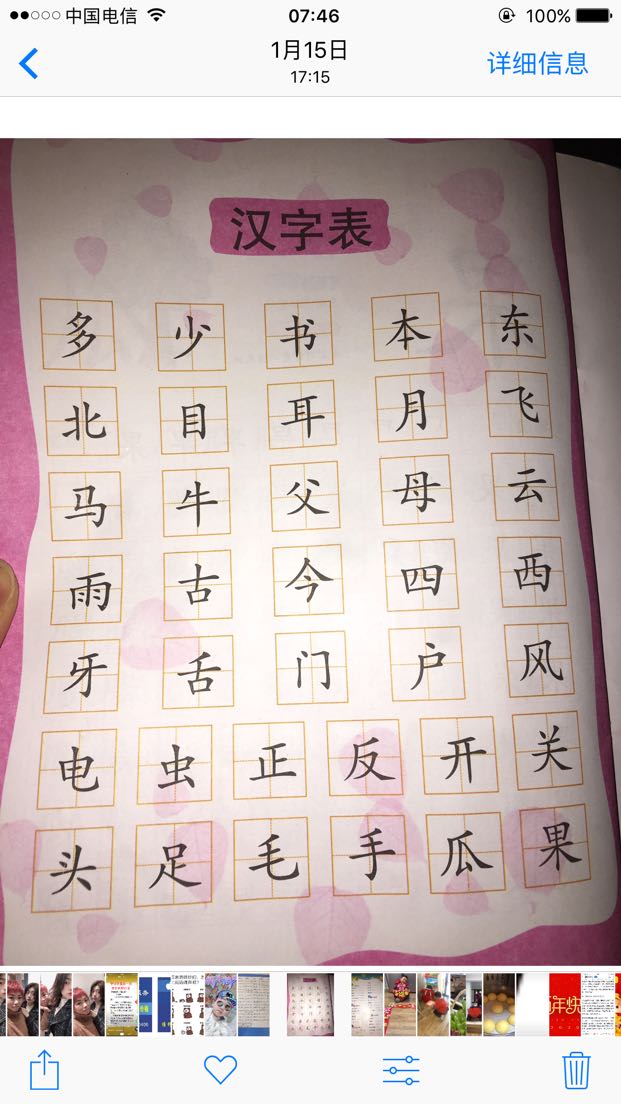 中国电信 07:46 100%
1月15日
17:15
详细信息
汉字表
多 少 书 本 东
北 目 耳 月 飞
马 牛 父 母 云
雨 古 今 四 西
牙 舌 门 户 风
电 虫 正 反 开 关
头 足 毛 手 瓜 果